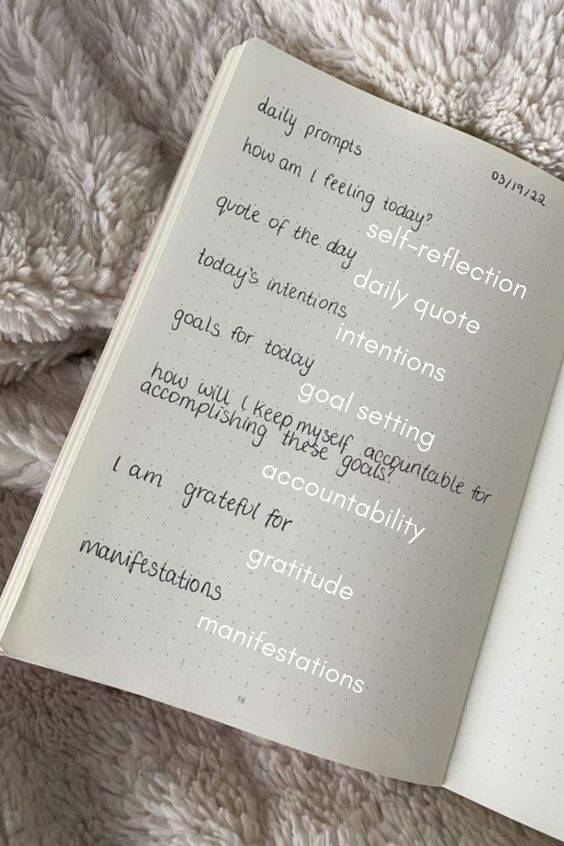 daily prompts
03/19/22
how am I feeling today?
self-reflection
quote of the day
daily quote
today's intentions
intentions
goals for today
goal setting
how will I keep myself accountable for
accomplishing these goals?
accountability
I am grateful for
gratitude
manifestations
manifestations
58